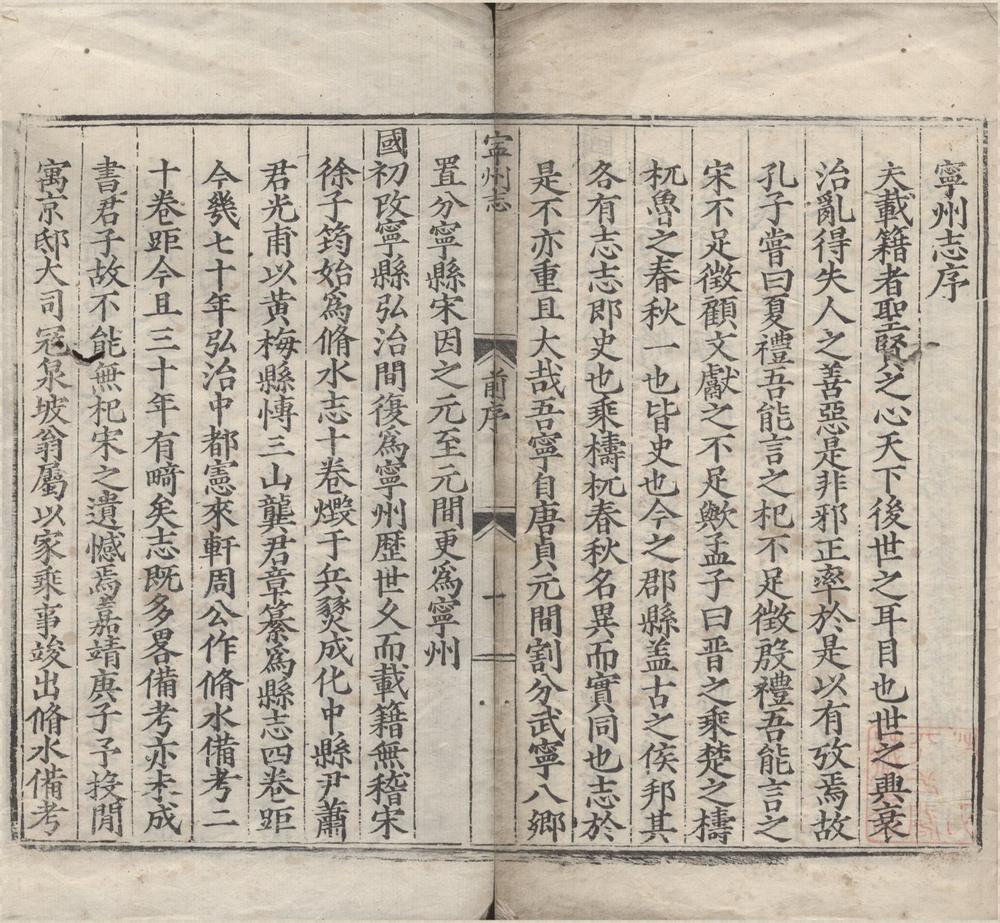 寧州志序
夫載籍者聖賢之心天下後世之耳目也世之興衰
治亂得失人之善惡是非邪正率於是以有攷焉故
孔子嘗曰夏禮吾能言之杞不足徵殷禮吾能言之
宋不足徵顧文獻之不足歟孟子曰晋之乘楚之檮
杌魯之春秋一也皆史也今之郡縣盖古之侯邦其
各有志志即史也乘檮杌春秋名異而實同也志於
是不亦重且大哉吾寧自唐貞元間割分武寧八鄉
寧州志
前序
一
置分寧縣宋因之元至元間更爲寧州
國初改寧縣弘治間復爲寧州歴世久而載籍無稽宋
徐子筠始爲脩水志十卷燬于兵燹成化中縣尹蕭
君光甫以黄梅縣愽三山龔君章纂爲縣志四卷距
今幾七十年弘治中都憲來軒周公作脩水備考二
十卷距今且三十年有畸矣志既多畧備考亦未成
書君子故不能無杞宋之遺憾焉嘉靖庚子予投閒
寓京邸大司冦泉坡翁屬以家乘事竣出脩水備考